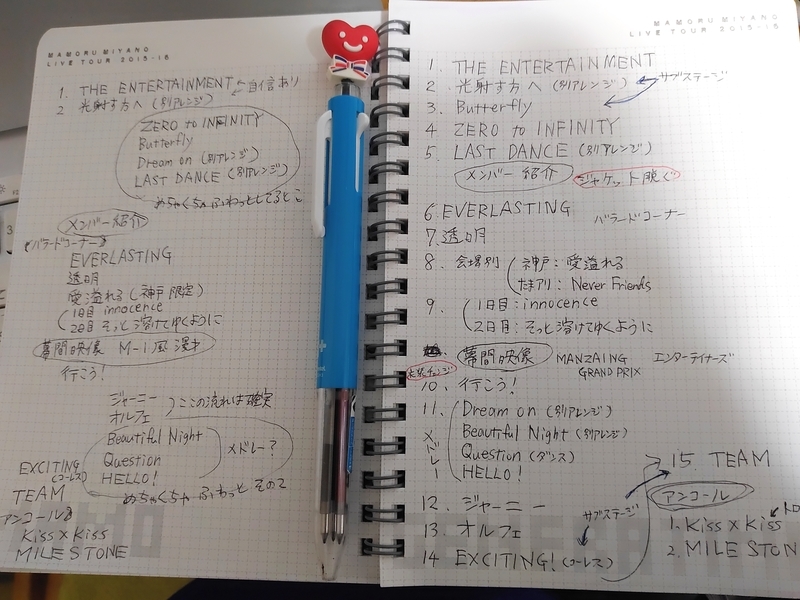 MAMORU MIYANO
LIVE TOUR 2015-16
1. THE ENTERTAINMENT ← 自信あり
2 光射す方へ (別アレンジ)
ZERO to INFINITY
Butterfly
Dream on (別アレンジ)
LAST DANCE (別アレンジ)
めちゃくちゃふわっとしてるとこ
メンバー紹介
バラードコーナー
EVERLASTING
透明
愛溢れる (神戸限定)
1日目 innocence
2日目 そっと溶けてゆくように
幕間映像 M-1風漫才
行こう!
ジャーニー
オルフェ
ここの流れは確実
Beautiful Night
Question
HELLO!
メドレー?
めちゃくちゃ ふわっと その2
EXCITING
(コーレス)
TEAM
アンコール
Kiss×Kiss
MILESTONE
MAMORU MIYANO
LIVE TOUR 2015-16
1. THE ENTERTAINMENT
2. 光射す方へ (別アレンジ) ← サブステージ
3. Butterfly
4 ZERO to INFINITY
5. LAST DANCE (別アレンジ)
メンバー紹介 ジャケット脱ぐ
6. EVERLASTING バラードコーナー
7. 透明
8. 会場別 神戸: 愛溢れる
たまアリ: Never Friends
9. 1日目: innocence
2日目: そっと溶けてゆくように
幕間映像 MANZAING GRAND PRIX エンターテイナーズ
衣装チェンジ
10. 行こう!
11. Dream on (別アレンジ)
Beautiful Night (別アレンジ)
Question (ダンス)
HELLO!
メドレー
12. ジャーニー
13. オルフェ
サブステージ
14 EXCITING! (コーレス)
15. TEAM
アンコール
1. Kiss×Kiss
2. MILESTON